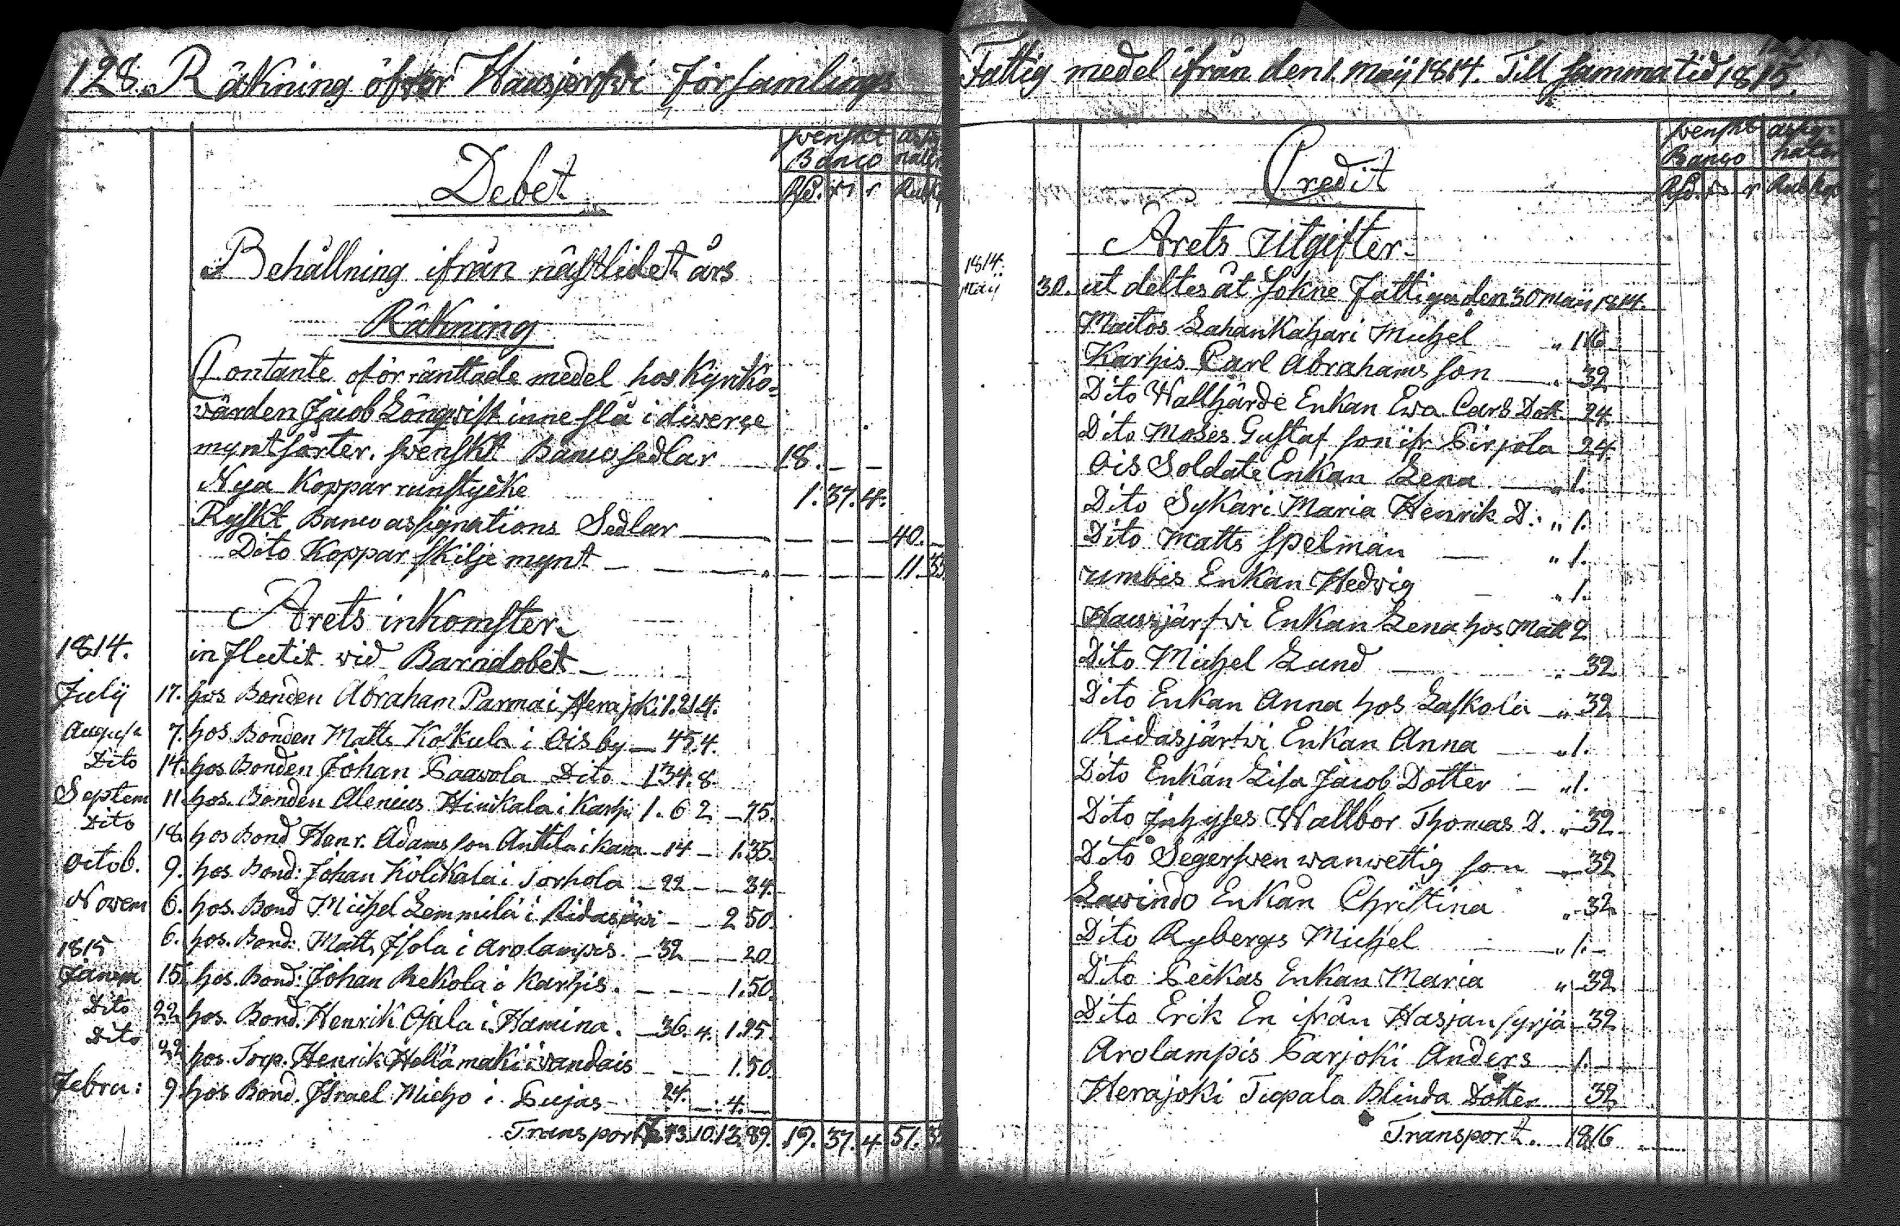 128. Räkning öfver Hausjerfvi Församlings
Debet
Svenskt Banco
Rd. s. r
Behållning ifrån nästlidet års
Räkning
Contante oförränttade medel hos Kyrko-
värden Jacob Löngvist inne stå i diverse
myntsorter. svenskt Banco sedlar 18. — —
Nya Koppar runstycke 1. 37. 4.
Ryskt Banco assignations Sedlar — — — 40. —
Dito Koppar skilje mynt — — — 11. 33
Årets inkomster
1814. influtit vid Barndobet
July 17. hos Bonden Abraham Parma i Herajoki 1. 21 4.
August 7. hos Bonden Matts Koskula i Ois by — 45. 4.
Dito 14. hos Bonden Johan Paavola Dito 1 34. 8.
Septem 11. hos Bonden Alenius Hirikala i Karhi 1. 6 2 — 75.
Dito 18. hos Bond Henr. Adamsson Anttila i kara — 14 — 1. 35.
Octob. 9. hos Bond: Johan Kölikala i Torhola — 22 — 34.
Novem 6. hos Bond Michel Lemmilä i Ridasjärvi — 2 50.
6. hos Bond: Matts Isola i Arolampis — 32 — 20.
1815
Janua 15. hos Bond: Johan Rekola i Karhis — — 1. 50.
Dito 22. hos Bond. Henrik Ojala i Hamina. — 36. 4. 1. 25.
Dito 22 hos Torp. Henrik Hellämäki i vandais — — 1. 50.
Febru: 9. hos Bond. Israel Micho i Pujas 24. — 4. —
Transport 43. 10. 12. 89. 19. 37. 4. 51. 33
Fattig medel ifrån den 1. Maij 1814. Till samma tid 1815.
Credit
Svenskt Banco
Rd. s. r
Årets utgifter
1814.
Maij 30. utdeltes åt Sokne Fattiga den 30 Maij 1814.
Maitos Lahankahari Michel „ 1 16
Karhis Carl Abrahamsson — 32
Dito Wallhärde Enkan Ewa Carls Dott. 24.
Dito Moses Gustaf son ifr Pirjola 24.
Ois Soldate Enkan Lena „ 1.
Dito Sykäri Maria Henrik D. „ 1.
Dito Matts Spelman — „ 1.
Umbis Enkan Hedvig — „ 1.
Hausjärfvi Enkan Lena hos Matt 2
Dito Michel Lund — 32
Dito Enkan Anna hos Laskola — „ 32
Ridasjärvi Enkan Anna — „ 1.
Dito Enkan Lisa Jacob Dotter — „ 1.
Dito Wallbor Thomas D. „ 32
Dito Segersven wanvettig son — 32
Lavindo Enkan Christina „ 32
Dito Rybergs Michel — „ 1. —
Dito Peckas Enkan Maria „ 32
Dito Erik En ifrån Hasjansyrjä — 32
Arolampis Parjoki Anders — 1. —
Herajoki Tiopala Blinda Dotter 32
Transport. 18 16